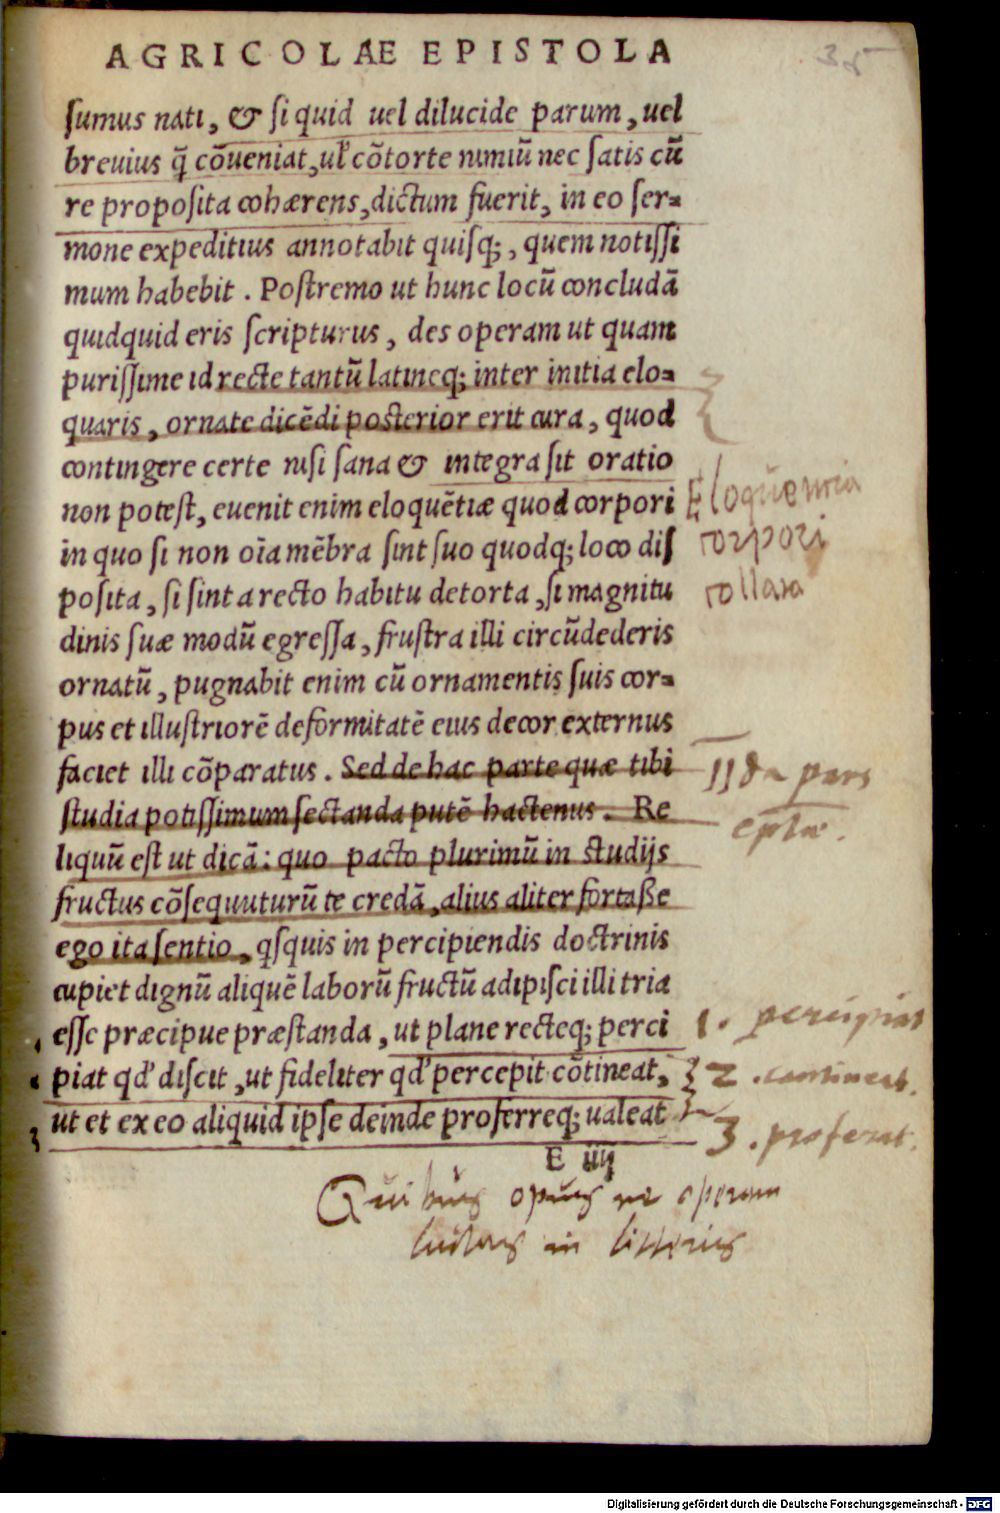 AGRICOLAE EPISTOLA
35
ſumus nati, & ſi quid uel dilucide parum, uel
breuius q̃ cõueniat, ul̃ cõtorte nimiũ nec ſatis cũ
re propoſita cohærens, dictum fuerit, in eo ſer-
mone expeditius annotabit quiſq;, quem notiſſi
mum habebit. Poſtremo ut hunc locũ concludã
quidquid eris ſcripturus, des operam ut quam
puriſſime id recte tantũ latineq; inter initia elo-
quaris, ornate dicẽdi posterior erit cura, quod
contingere certe niſi ſana & integra ſit oratio
non poteſt, euenit enim eloquẽtiæ quod corpori
in quo ſi non oĩa mẽbra ſint ſuo quodq; loco diſ
poſita, ſi ſint a recto habitu detorta, ſi magnitu
dinis ſuæ modũ egreſſa, fruſtra illi circũdederis
ornatũ, pugnabit enim cũ ornamentis ſuis cor-
pus et illuſtriorẽ deformitatẽ eius decor externus
faciet illi cõparatus. Sed de hac parte quæ tibi
ſtudia potiſſimum ſectanda putẽ hactenus. Re
liquũ eſt ut dicã: quo pacto plurimũ in studijs
fructus cõſequuturũ te credã, alius aliter fortaſſe
ego ita ſentio, qſquis in percipiendis doctrinis
cupiet dignũ aliquẽ laborũ fructũ adipiſci illi tria
eſſe præcipue præſtanda, ut plane recteq; perci
piat qd' diſcit, ut fideliter qd' percepit cõtineat,
ut et ex eo aliquid ipſe deinde proferreq; ualeat
E iiij
Eloquentia
corpori
collata
IIda pars
eplæ.
1. percipiat
2. contineat.
3. proferat.
Quibus opus ne operam
ludas in litteris
Digitalisierung gefördert durch die Deutsche Forschungsgemeinschaft - DFG